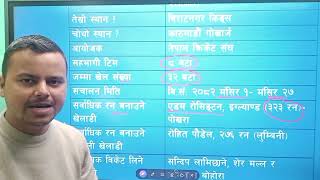 तेस्रो स्थान ? विराटनगर किङ्स
चौथो स्थान ? काठमाडौं गोर्खाज
आयोजक नेपाल क्रिकेट संघ
सहभागी टिम ८ वटा
जम्मा खेल संख्या ३२ वटा
सञ्चालन मिति वि.सं. २०८२ मंसिर १- मंसिर २७
सर्वाधिक रन बनाउने एडम रोसिङ्टन, इंग्ल्याण्ड (३२३ रन)-
खेलाडी पोखरा
रन बनाउने रोहित पौडेल, २७६ रन (लुम्बिनी)
खेलाडी
विकेट लिने सन्दिप लामिछाने, शेर मल्ल र
बोहोरा